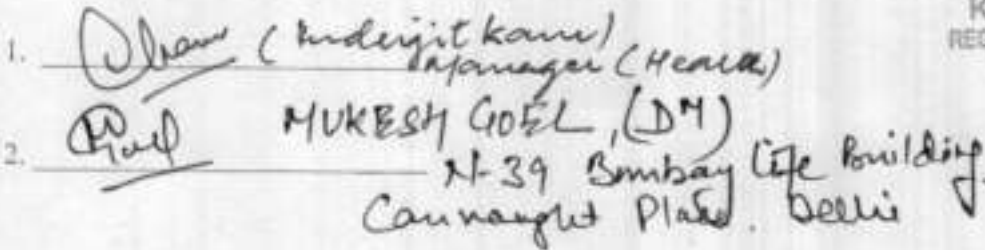 1. (Inderjit kaur)
Manager (Health)
2. MUKESH GOEL, (DM)
N-39 Bombay Life Building,
Connaught Place. Delhi